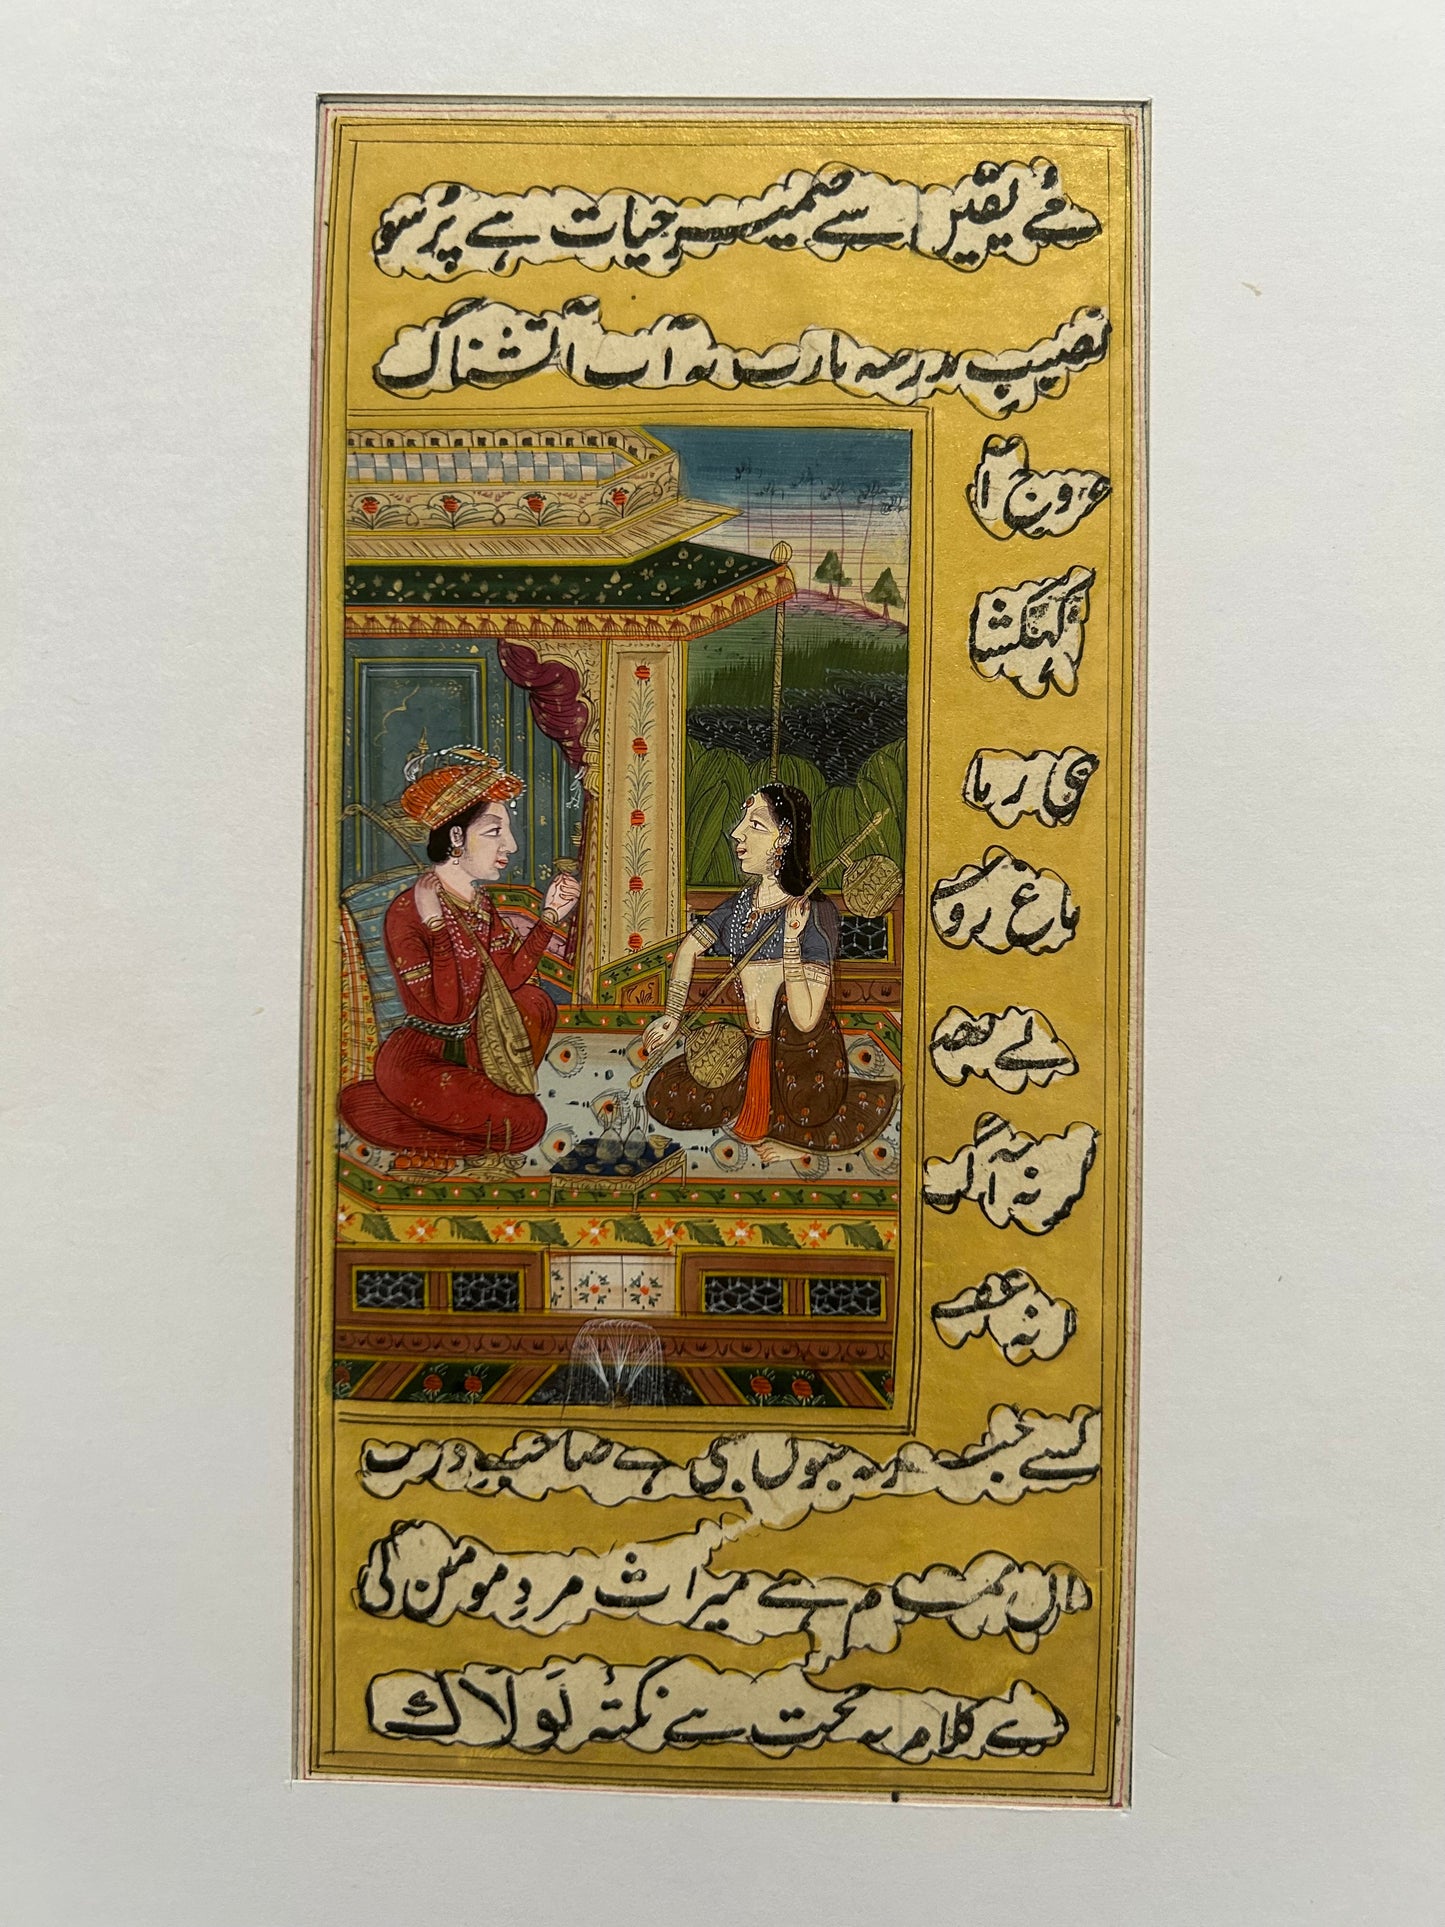 مے یقیں سے ضمیر حیات ہے پُر سو
نصیبِ مدرسہ یارب یہ آب آتشناک
عروج آ
کہکشا
زما
ماغ رو
بے بصر
رنہ آگ
انہ عقل
کسے خبر کہ جنوں بھی ہے صاحبِ
اں تمام ہے میراث مردِ مومن کی
ے کلام پہ حجت ہے نکتۂ لَولاک